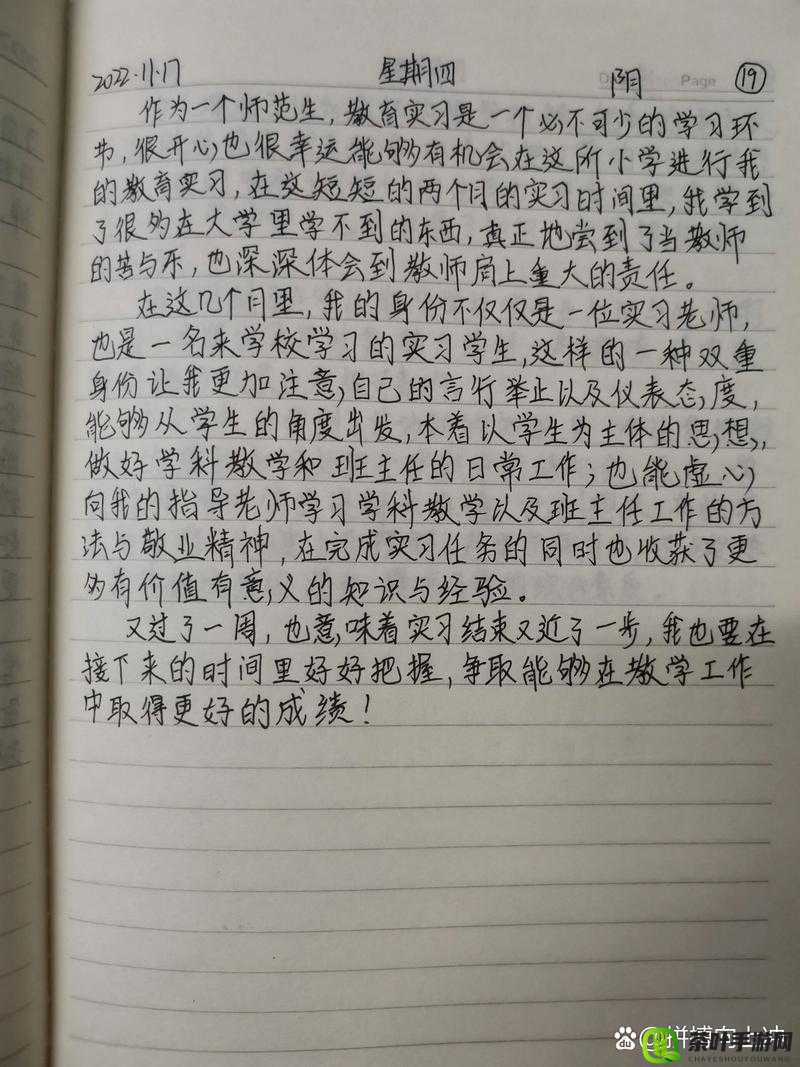 2022.11.17 星期四 阴 Page 19
作为一个师范生，教育实习是一个必不可少的学习环
节，很开心也很幸运能够有机会在这所小学进行我
的教育实习，在这短短的两个月的实习时间里，我学到
了很多在大学里学不到的东西，真正地尝到了当教师
的苦与乐，也深深体会到教师肩上重大的责任。
在这几个月里，我的身份不仅仅是一位实习老师，
也是一名来学校学习的实习学生，这样的一种双重
身份让我更加注意自己的言行举止以及仪表态度，
能够从学生的角度出发，本着以学生为主体的思想，
做好学科教学和班主任的日常工作；也能虚心
向我的指导老师学习学科教学以及班主任工作的方
法与敬业精神，在完成实习任务的同时也收获了更
多有价值有意义的知识与经验。
又过了一周，也意味着实习结束又近了一步，我也要在
接下来的时间里好好把握，争取能够在教学工作
中取得更好的成绩！
茶叶手游网
CHAYESHOUYOUWANG